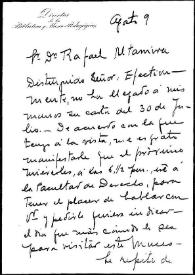 Director
de la
Biblioteca y Museo Pedagógicos
Agosto 9
Sr. Dn. Rafael Altamira
Distinguido Señor: Efectiva-
mente, no ha llegado á mis
manos su carta del 30 de Ju-
lio. De acuerdo con la que
tengo á la vista, me es grato
manifestarle que el próximo
miércoles, á las 6 1/2 p.m., iré á
la Facultad de Derecho, para
tener el placer de hablar con
Vd. y pedirle quiera indicar
el día que más cómodo le sea
para visitar este Museo.
Le repito de